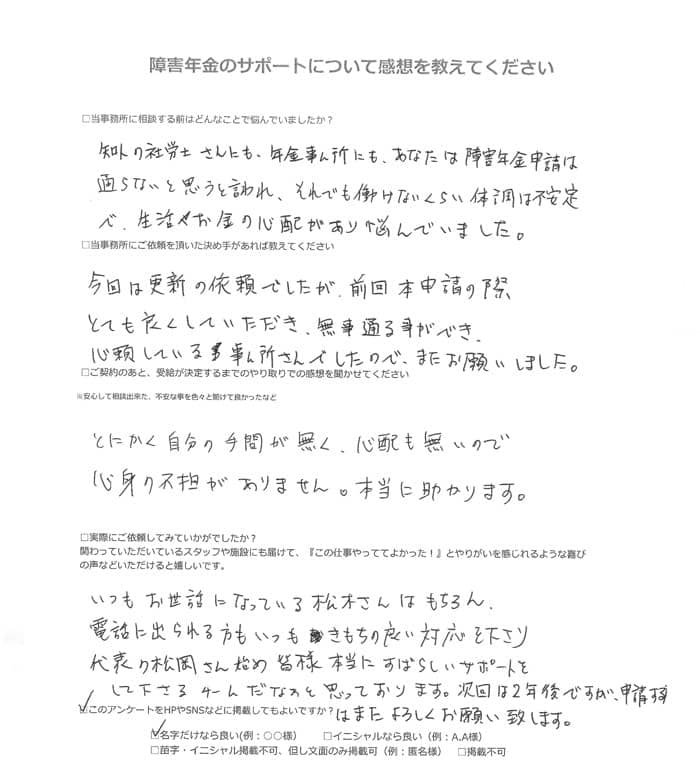 障害年金のサポートについて感想を教えてください
□当事務所に相談する前はどんなことで悩んでいましたか？
知人の社労士さんにも、年金事ム所にも、あなたは障害年金申請は
通らないと思うと言われ、それでも働けないくらい体調は不安定
で、生活やお金の心配があり悩んでいました。
□当事務所にご依頼を頂いた決め手があれば教えてください
今回は更新の依頼でしたが、前回本申請の際
とても良くしていただき、無事通る事ができ、
心頼している事ム所さんでしたので、またお願いしました。
□ご契約のあと、受給が決定するまでのやり取りでの感想を聞かせてください
※安心して相談出来た、不安な事を色々と聞けて良かったなど
とにかく自分の手間が無く、心配も無いので
心身の不担がありません。本当に助かります。
□実際にご依頼してみていかがでしたか？
関わっていただいているスタッフや施設にも届けて、『この仕事やっててよかった！』とやりがいを感じれるような喜び
の声などいただけると嬉しいです。
いつもお世話になっている松木さんはもちろん、
電話に出られる方もいつもきもちの良い対応を下さり
代表の松岡さん始め皆様本当にすばらしいサポートを
して下さるチームだなぁと思っております。次回は2年後ですが、申請時
☑このアンケートをHPやSNSなどに掲載してもよいですか？はまたよろしくお願い致します。
☑名字だけなら良い(例：○○様）　□イニシャルなら良い（例：A.A様）
□苗字・イニシャル掲載不可、但し文面のみ掲載可（例：匿名様）　□掲載不可